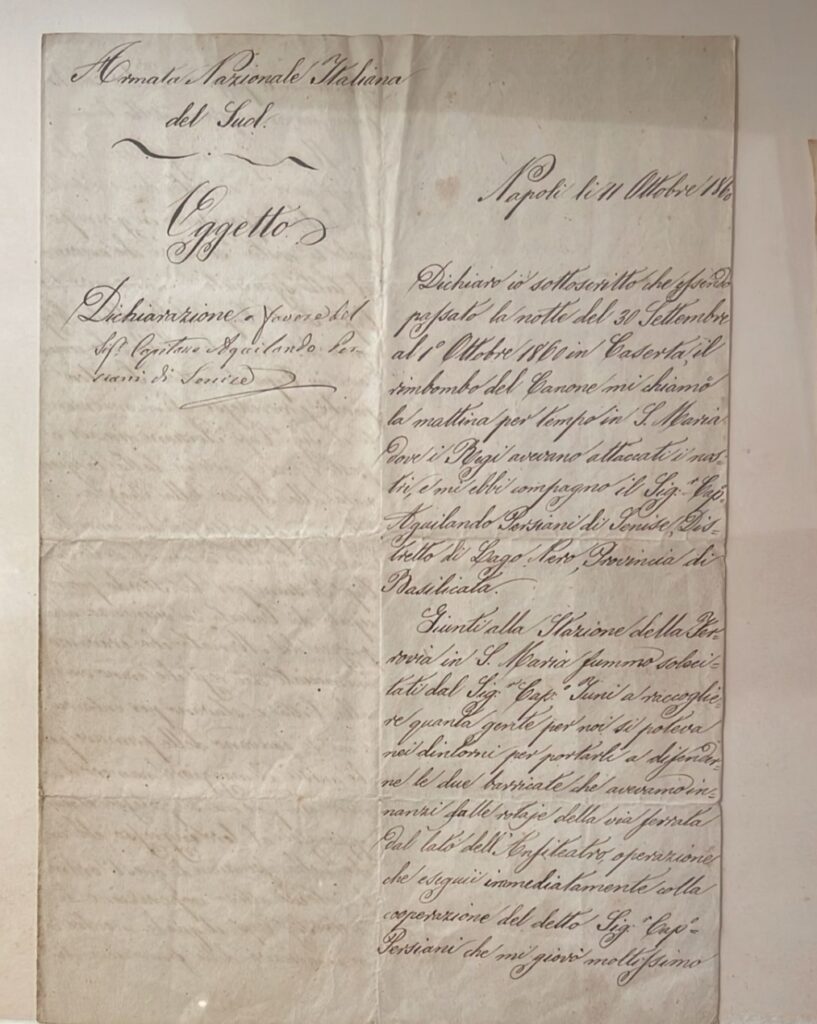 Armata Nazionale Italiana
del Sud.
Oggetto
Dichiarazione a favore del
Sig.r Capitano Aquilando Per-
siani di Senise
Napoli li 11 Ottobre 1860
Dichiaro io sottoscritto che essendo
passato la notte del 30 Settembre
al 1º Ottobre 1860 in Caserta, il
rimbombo del Canone mi chiamò
la mattina per tempo in S. Maria
dove i Regi avevano attaccati i nos-
tri, e mi ebbi compagno il Sig.r Cap.º
Aquilando Persiani di Senise, Dis-
tretto di Lago Nero, Provincia di
Basilicata.
Giunti alla Stazione della Fer-
rovia in S. Maria fummo soleci-
tati dal Sig.r Cap.º a raccoglie-
re quanta gente per noi si poteva
nei dintorni per portarli a difender-
ne le due barricate che avevamo in-
nanzi falle rotaje della via ferrata
dal lato dell'Anfiteatro, operazione
che eseguii immediatamente colla
cooperazione del detto Sig.r Cap.º
Persiani che mi giovò moltissimo